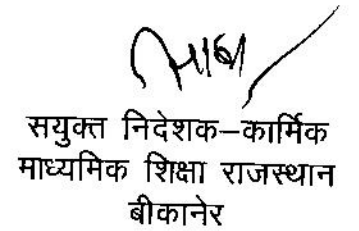 सयुक्त निदेशक–कार्मिक
माध्यमिक शिक्षा राजस्थान
बीकानेर